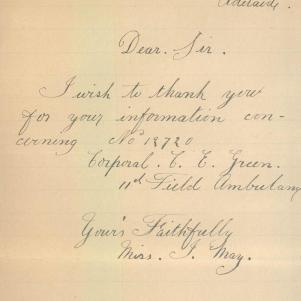 Adelaide.
Dear. Sir.
I wish to thank you
for your information con-
cerning No 12720
Corporal. C. E. Green.
11th Field Ambulance
Your's Faithfully
Miss. I. May.